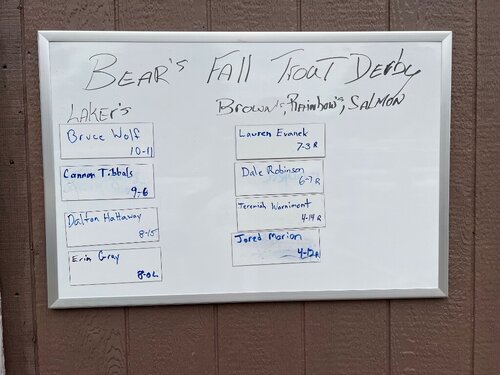 Bear's Fall Trout Derby
Laker's
Bruce Wolf
10-11
Cannon Tibbals
9-6
Dalton Hattaway
8-15
Erin Gray
Brown's, Rainbow's, Salmon
Lauren Evanek
7-3 R
Dale Robinson
6-7 R
Jeremiah Warnimont
4-14 R
Jared Marion
4-12 R